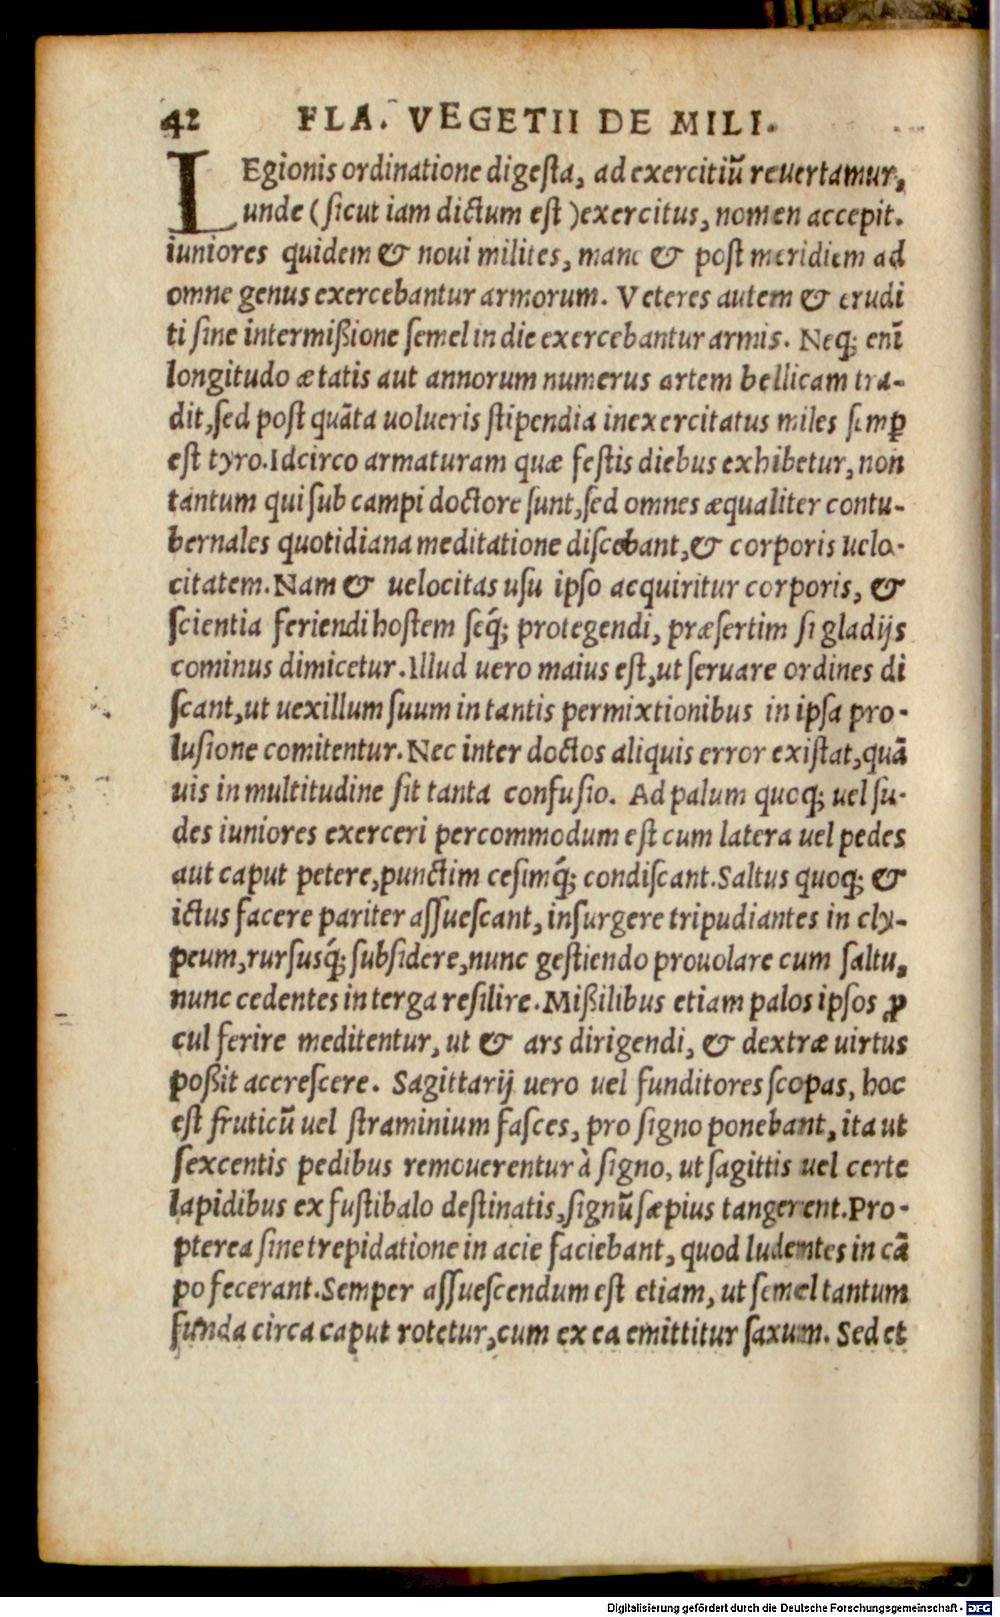 42 FLA. VEGETII DE MILI.
LEgionis ordinatione digesta, ad exercitiũ reuertamur,
unde (sicut iam dictum est) exercitus, nomen accepit.
iuniores quidem & noui milites, mane & post meridiem ad
omne genus exercebantur armorum. Veteres autem & erudi
ti sine intermißione semel in die exercebantur armis. Neq; enĩ
longitudo ætatis aut annorum numerus artem bellicam tra-
dit, sed post quãta uolueris stipendia inexercitatus miles semꝑ
est tyro. Idcirco armaturam quæ festis diebus exhibetur, non
tantum qui sub campi doctore sunt, sed omnes æqualiter contu-
bernales quotidiana meditatione discebant, & corporis uelo-
citatem. Nam & uelocitas usu ipso acquiritur corporis, &
scientia feriendi hostem seq́; protegendi, præsertim si gladijs
cominus dimicetur. Illud uero maius est, ut seruare ordines di
scant, ut uexillum suum in tantis permixtionibus in ipsa pro-
lusione comitentur. Nec inter doctos aliquis error existat, quã
uis in multitudine sit tanta confusio. Ad palum quoq; uel su-
des iuniores exerceri percommodum est cum latera uel pedes
aut caput petere, punctim cesimq́; condiscant. Saltus quoq; &
ictus facere pariter assuescant, insurgere tripudiantes in cly-
peum, rursusq́; subsidere, nunc gestiendo prouolare cum saltu,
nunc cedentes in terga resilire. Mißilibus etiam palos ipsos ꝓ
cul ferire meditentur, ut & ars dirigendi, & dextræ uirtus
poßit accrescere. Sagittarij uero uel funditores scopas, hoc
est fruticũ uel straminium fasces, pro signo ponebant, ita ut
sexcentis pedibus remouerentur à signo, ut sagittis uel certe
lapidibus ex fustibalo destinatis, signũ sæpius tangerent. Pro-
pterea sine trepidatione in acie faciebant, quod ludentes in cã
po fecerant. Semper assuescendum est etiam, ut semel tantum
funda circa caput rotetur, cum ex ea emittitur saxum. Sed et
Digitalisierung gefördert durch die Deutsche Forschungsgemeinschaft - DFG